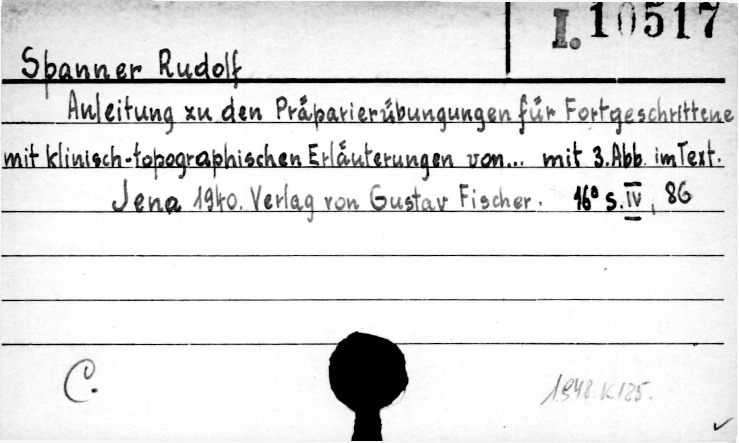 I. 10517
Spanner Rudolf
Anleitung zu den Präparierübungungen für Fortgeschrittene
mit klinisch-topographischen Erläuterungen von... mit 3. Abb. im Text.
Jena 1940. Verlag von Gustav Fischer. 16° S. IV, 86
C.
1948. K. 185.